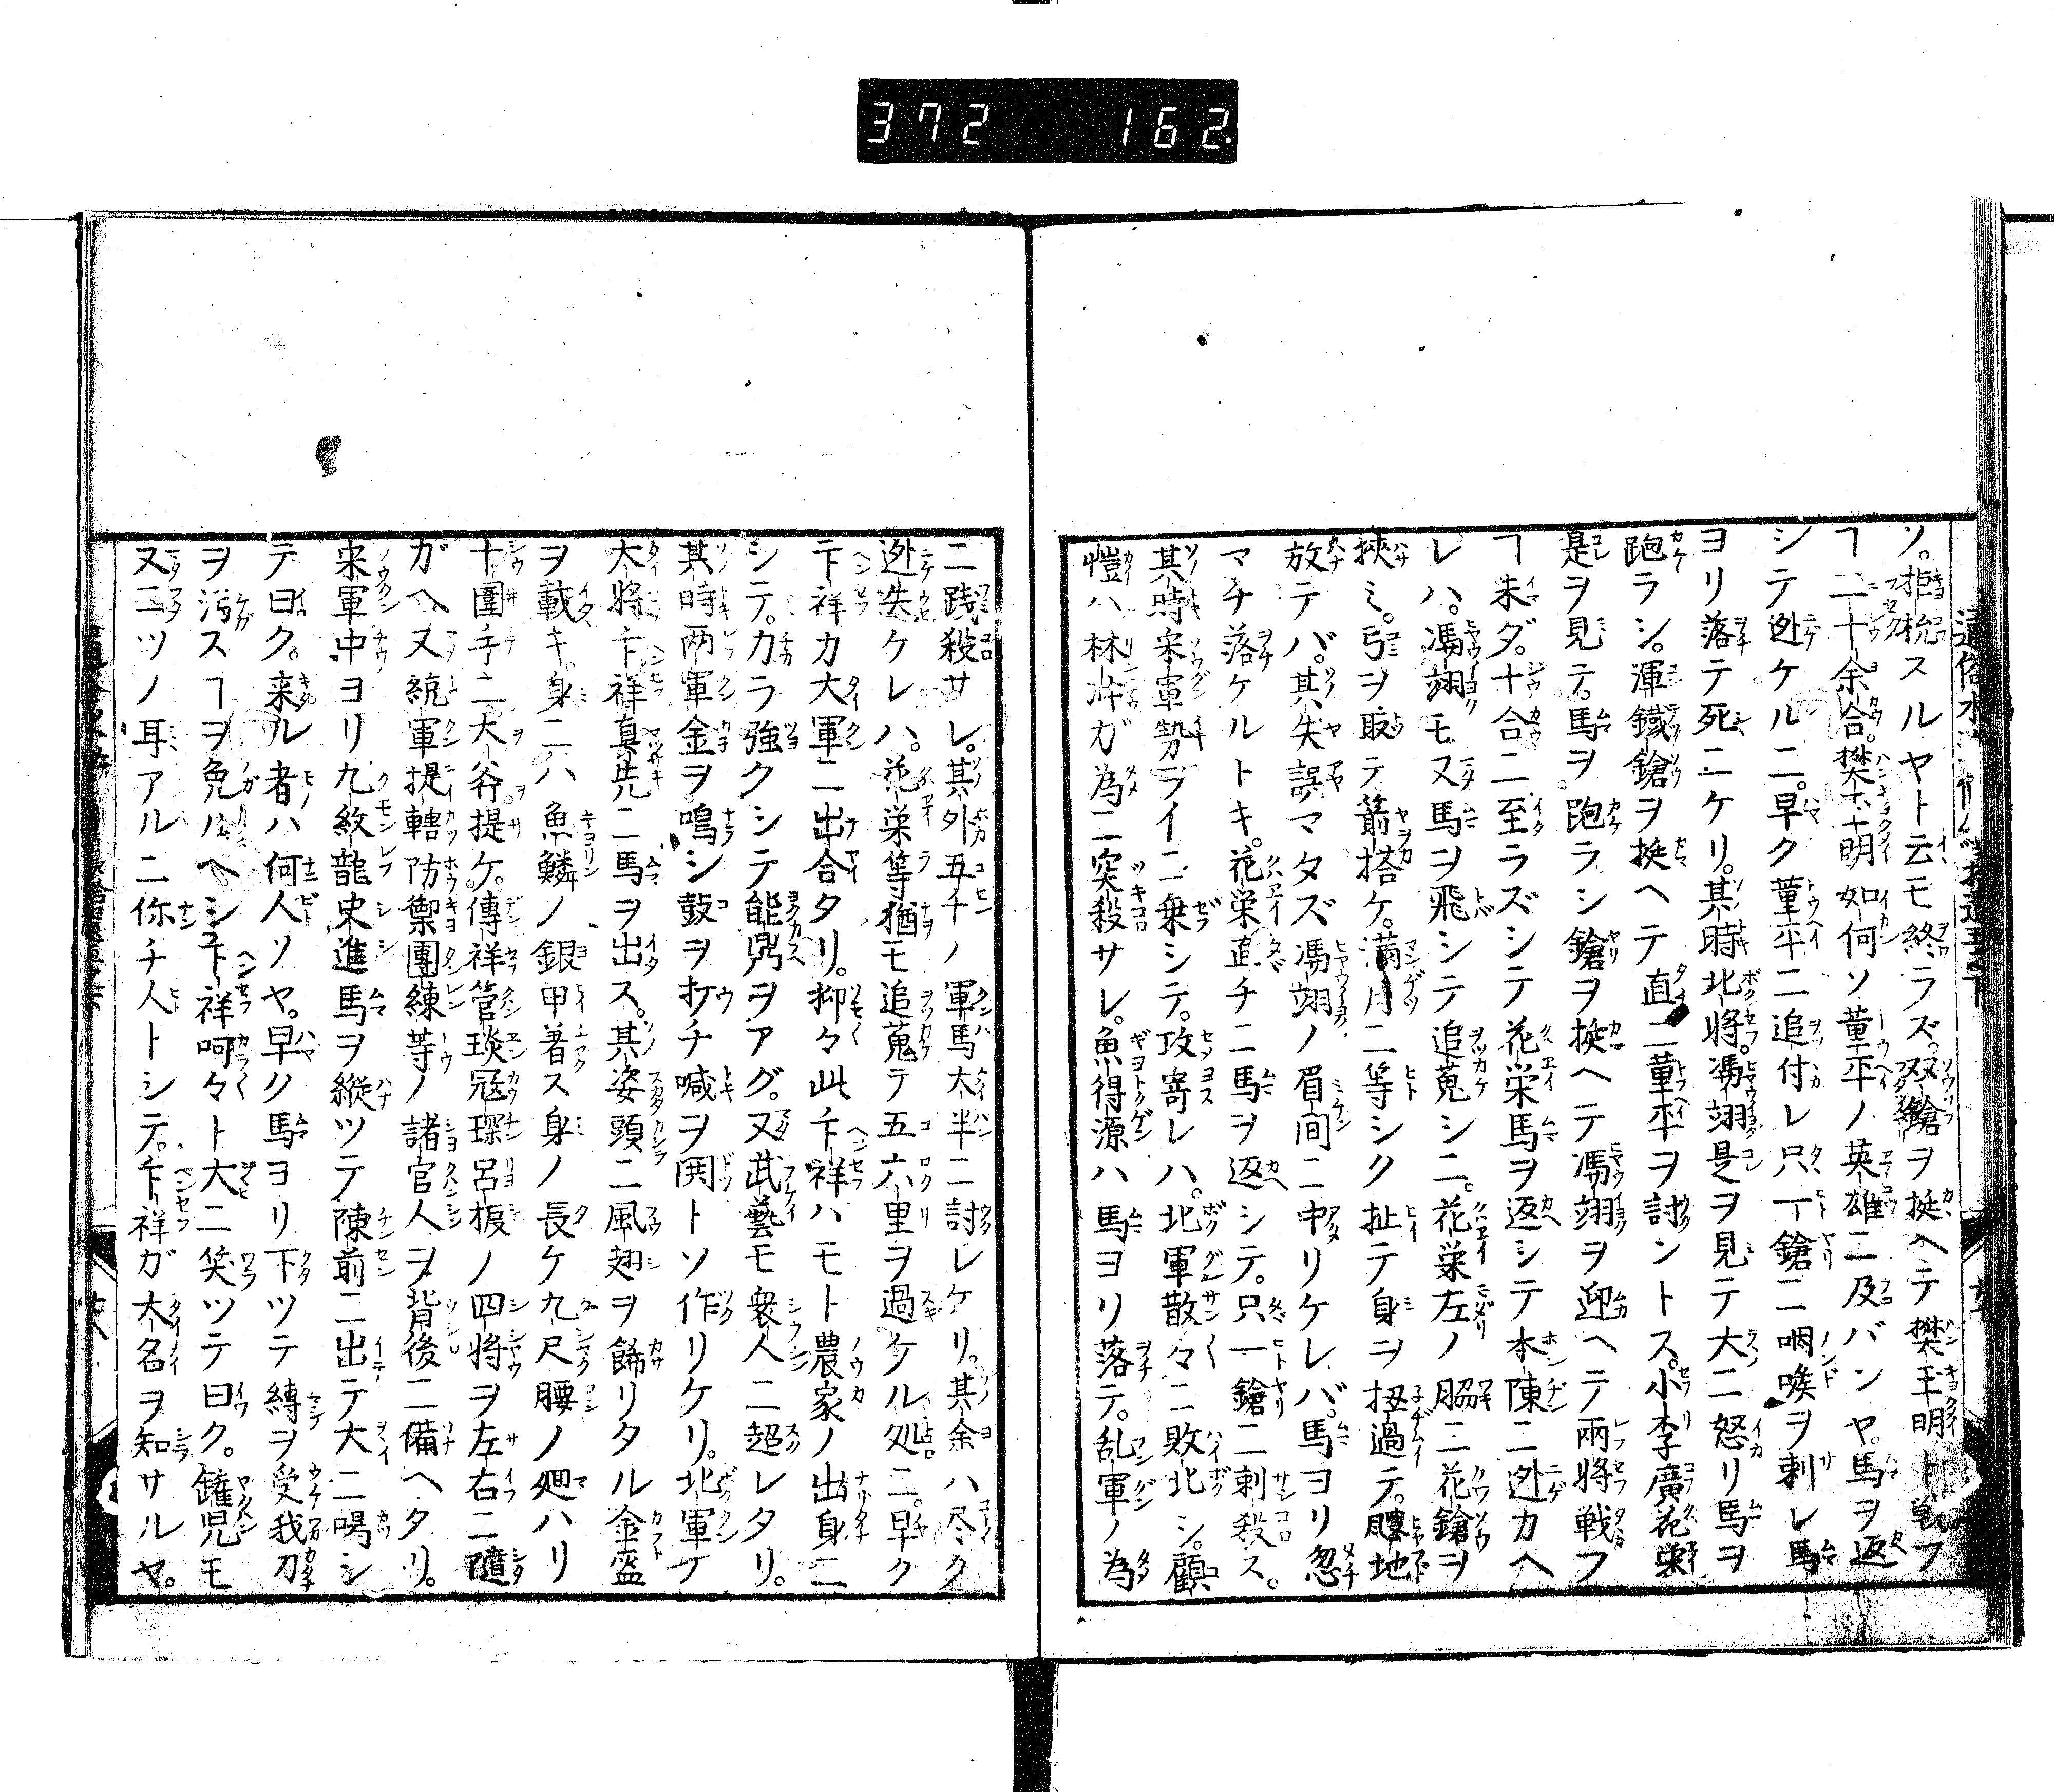 372 162
ソ。拒抗スルヤト云モ終ラズ。双鎗ヲ挺ヘテ樊玉明ト戦フ
ヿ二十余合。樊玉明如何ソ董平ノ英雄ニ及バンヤ。馬ヲ返
シテ迯ケルニ。早ク董平ニ追付レ只一鎗ニ咽喉ヲ刺レ馬
ヨリ落テ死ニケリ。其時北将。馮翊是ヲ見テ大ニ怒リ馬ヲ
跑ラシ。渾鐵鎗ヲ挺ヘテ直ニ董平ヲ討ントス。小李廣花栄
是ヲ見テ。馬ヲ跑ラシ鎗ヲ挺ヘテ馮翊ヲ迎ヘテ兩将戦フ
ヿ未ダ。十合ニ至ラズシテ花栄馬ヲ返シテ本陳ニ迯カヘ
レハ。馮翊モ又馬ヲ飛シテ追蒐シニ。花栄左ノ脇ニ花鎗ヲ
挾ミ。弓ヲ取テ箭搭ケ。滿月ニ等シク扯テ身ヲ扭過テ。驀地
放テバ。其矢誤マタズ馮翊ノ眉間ニ中リケレバ。馬ヨリ忽
マチ落ケルトキ。花栄直チニ馬ヲ返シテ。只一鎗ニ刺殺ス。
其時宋軍勢ヲイニ乗シテ。攻寄レハ。北軍散々ニ敗北シ。顧
愷ハ林冲ガ為ニ突殺サレ。魚得源ハ馬ヨリ落テ。乱軍ノ為
ニ踐殺サレ。其外五千ノ軍馬太半ニ討レケリ。其余ハ尽ク
迯失ケレハ。花栄等猶モ追蒐テ五六里ヲ過ケル処ニ。早ク
卞祥カ大軍ニ出合タリ。抑々此卞祥ハモト農家ノ出身ニ
シテ。カラ強クシテ能鼎ヲアグ。又武藝モ衆人ニ超レタリ。
其時両軍金ヲ鳴シ鼓ヲ打チ喊ヲ鬨トソ作リケリ。北軍ノ
大将卞祥真先ニ馬ヲ出ス。其姿頭ニ風翅ヲ餙リタル金盔
ヲ載キ。身ニハ魚鱗ノ銀甲著ス身ノ長ケ九尺腰ノ廻ハリ
十圍手ニ大斧提ケ。傳祥管琰冦琛呂振ノ四将ヲ左右ニ隨
ガヘ又統軍提轄防禦團練等ノ諸官人ヲ背後ニ備ヘタリ。
宋軍中ヨリ九紋龍史進馬ヲ縦ツテ陳前ニ出テ大ニ喝シ
テ曰ク。来ル者ハ何人ソヤ。早ク馬ヨリ下ツテ縛ヲ受我刀
ヲ汚スヿヲ免ルヘシ卞祥呵々ト大ニ笑ツテ曰ク。鑵児モ
又二ツノ耳アルニ你チ人トシテ。卞祥ガ大名ヲ知サルヤ。